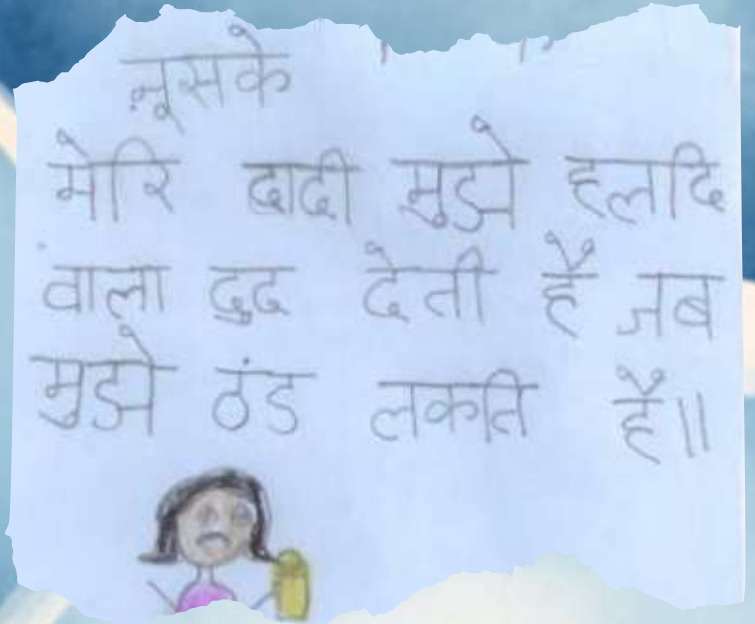 नूसके
मेरि दादी मुझे हलदि
वाला दुद देती है जब
मुझे ठंड लकति है॥